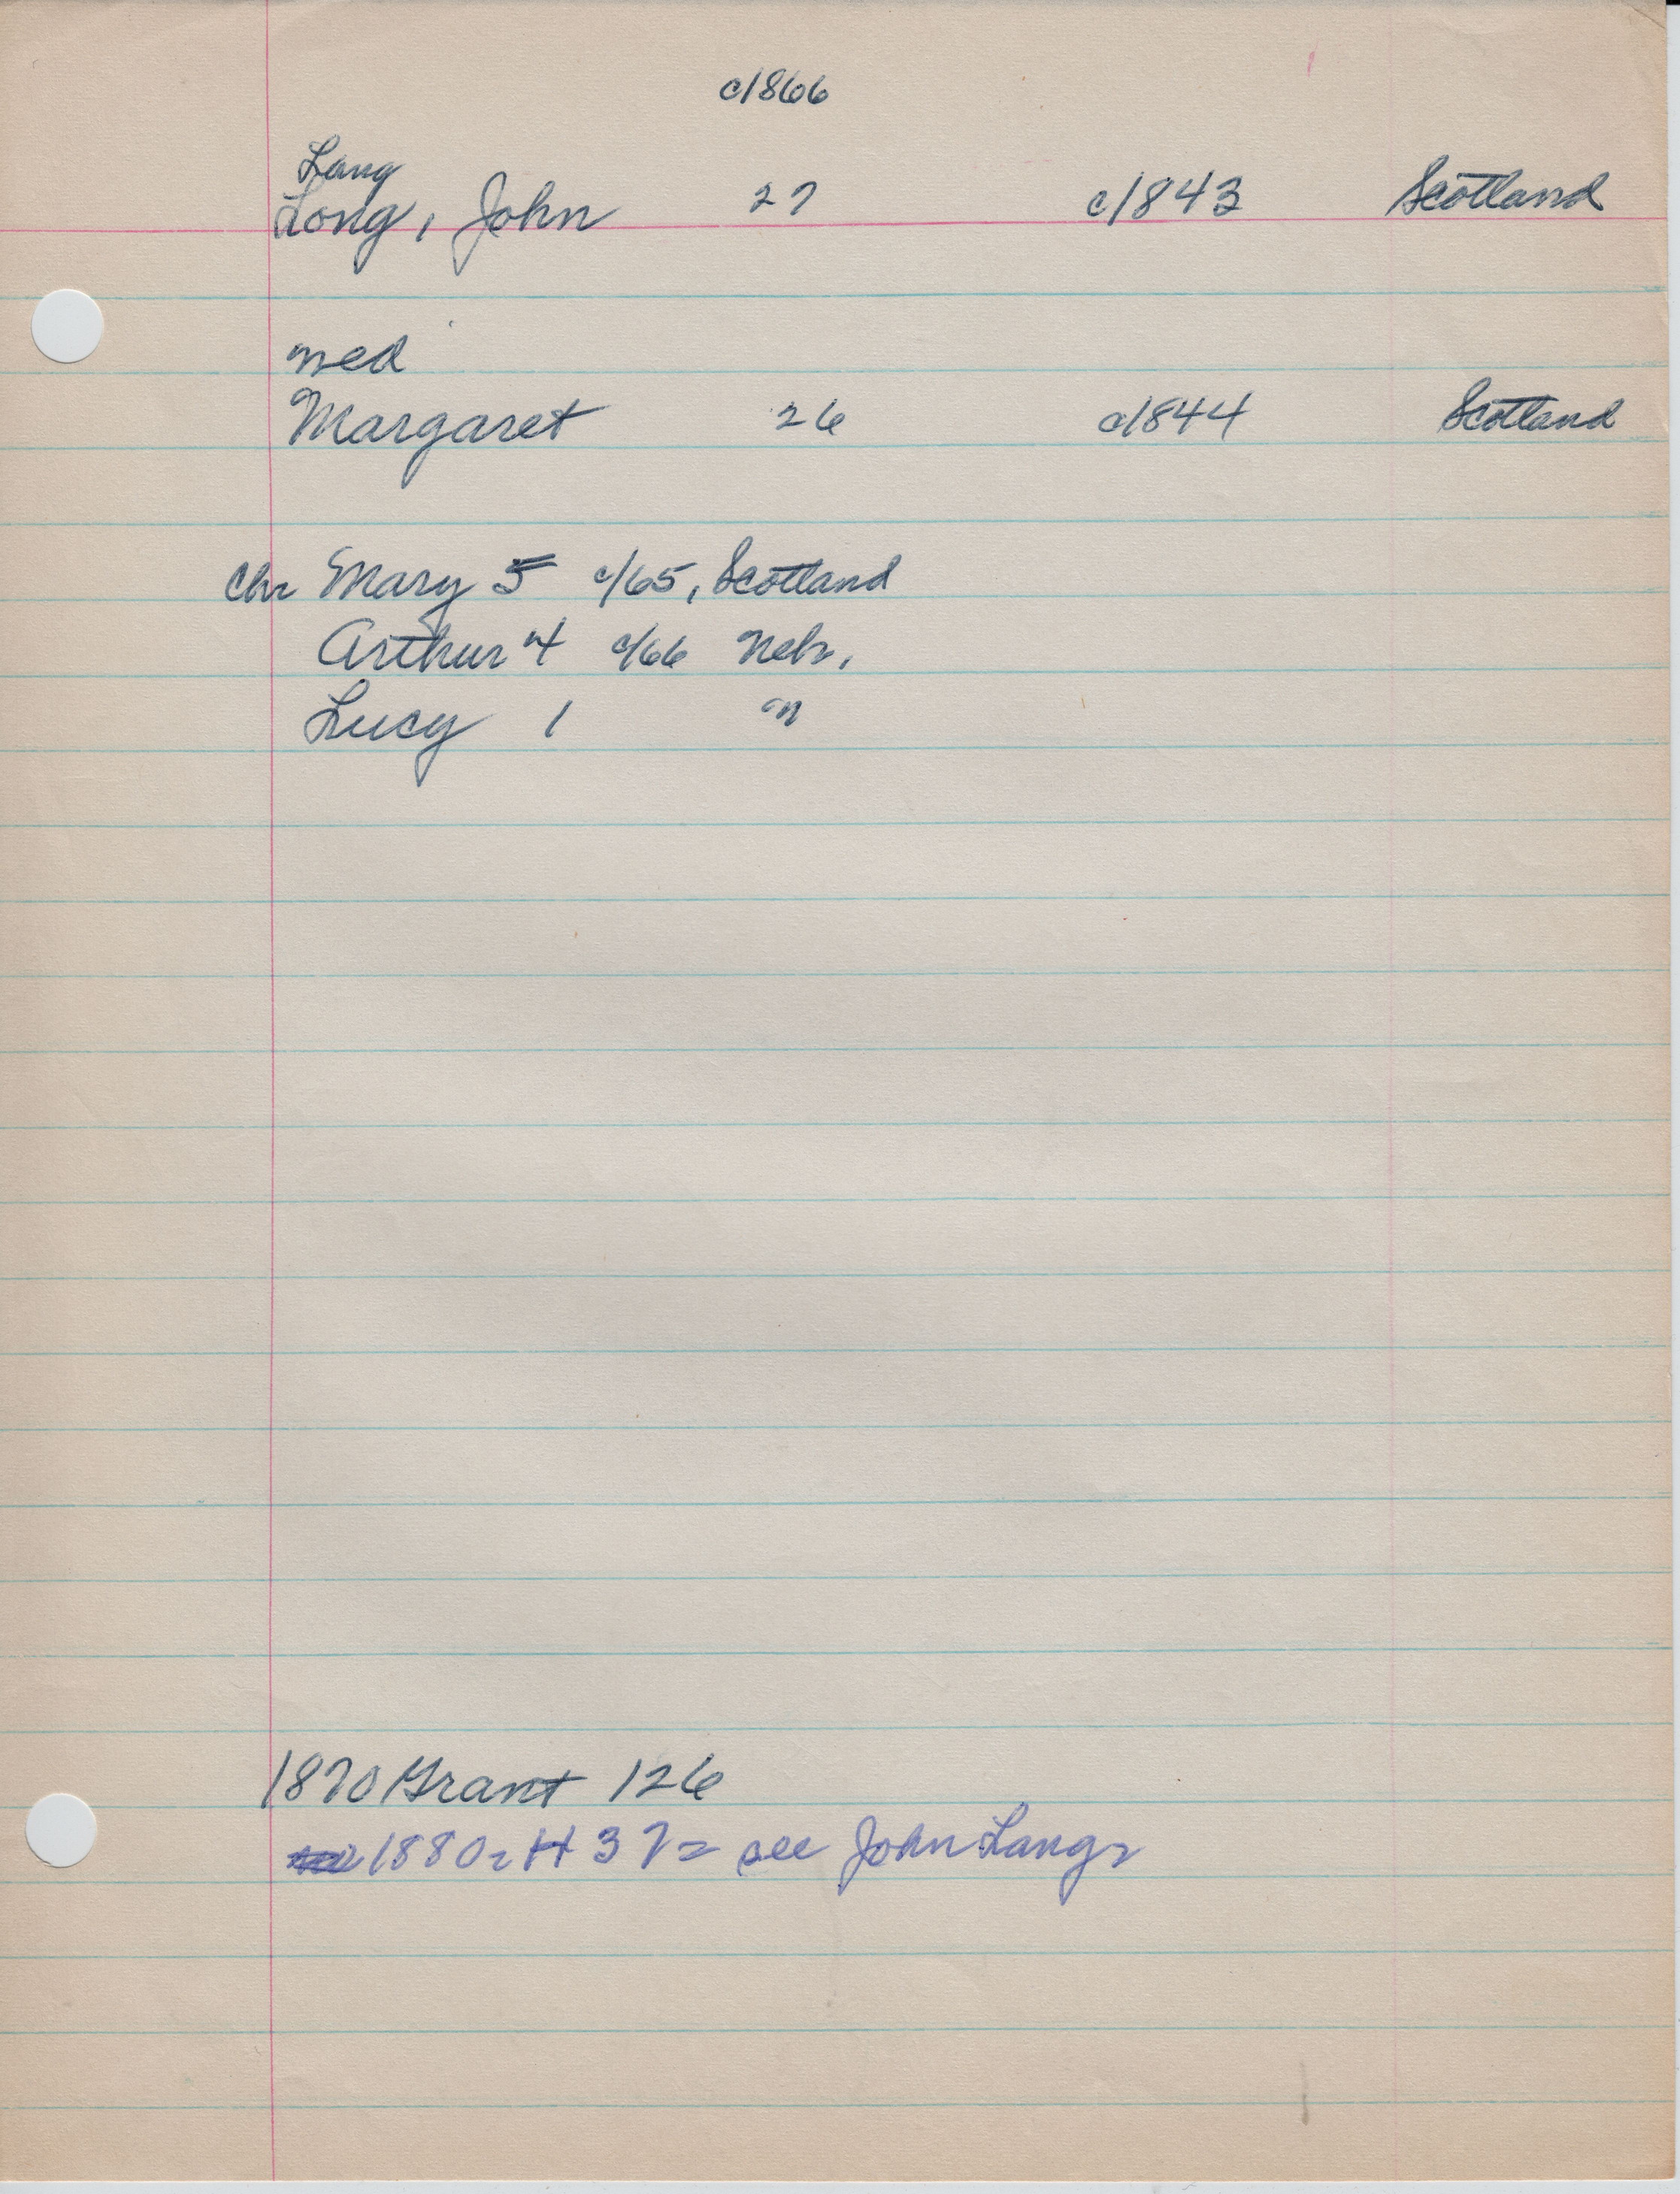 c1866
Lang
Long, John 27 c1843 Scotland
med
Margaret 26 c1844 Scotland
chr Mary 5 c/65, Scotland
Arthur 4 c/66 Nebr.
Lucy 1 "
1870 Grant 126
1880 - H 37 = see John Lang